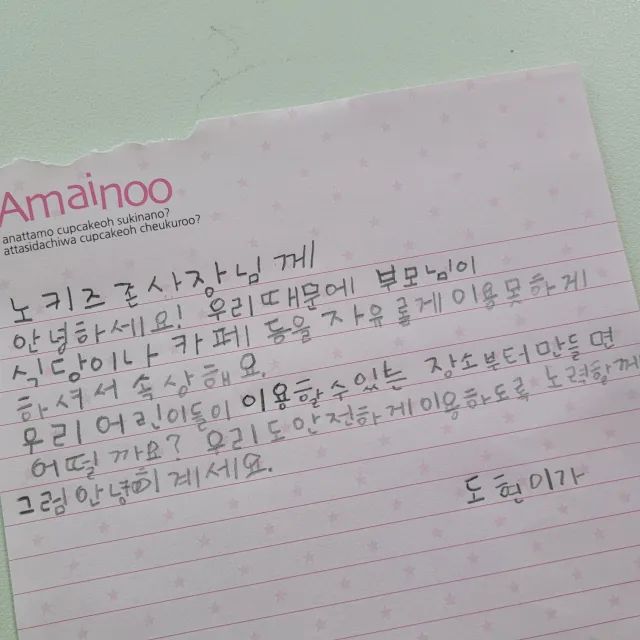 Amainoo
anattamo cupcakeoh sukinano?
attasidachiwa cupcakeoh cheukuroo?
노키즈존사장님께
안녕하세요! 우리때문에 부모님이
식당이나 카페 등을 자유롭게 이용못하게
하셔서 속상해요.
우리 어린이들이 이용할수있는 장소부터만들면
어떨까요? 우리도안전하게이용하도록 노력할께
그럼안녕히계세요.
도현이가